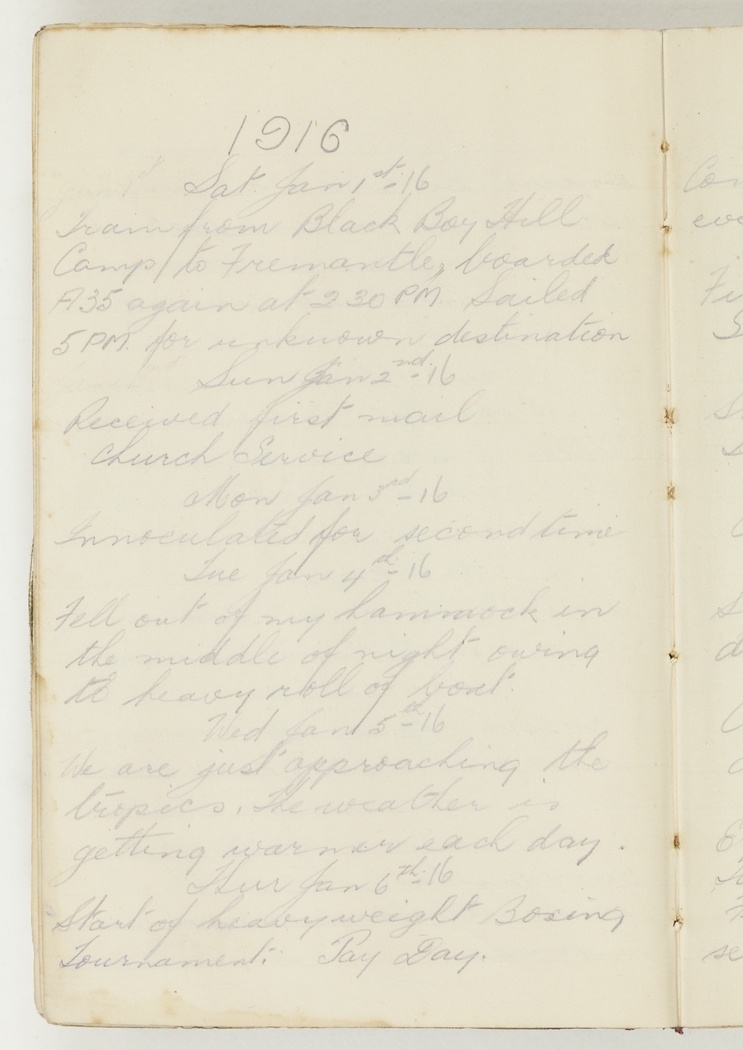 1916
Sat. Jan 1st-16
Train from Black Boy Hill
Camp to Fremantle, boarded
A35 again at 2 30 PM. Sailed
5 PM. for unknown destination
Sun Jan 2nd-16
Received first mail
Church Service
Mon Jan 3rd-16
Innoculated for second time
Tue Jan 4th-16
Fell out of my hammock in
the middle of night owing
to heavy roll of boat.
Wed Jan 5th-16
We are just approaching the
tropics. The weather is
getting warmer each day.
Thur Jan 6th-16
Start of heavyweight Boxing
Tournament. Pay Day.